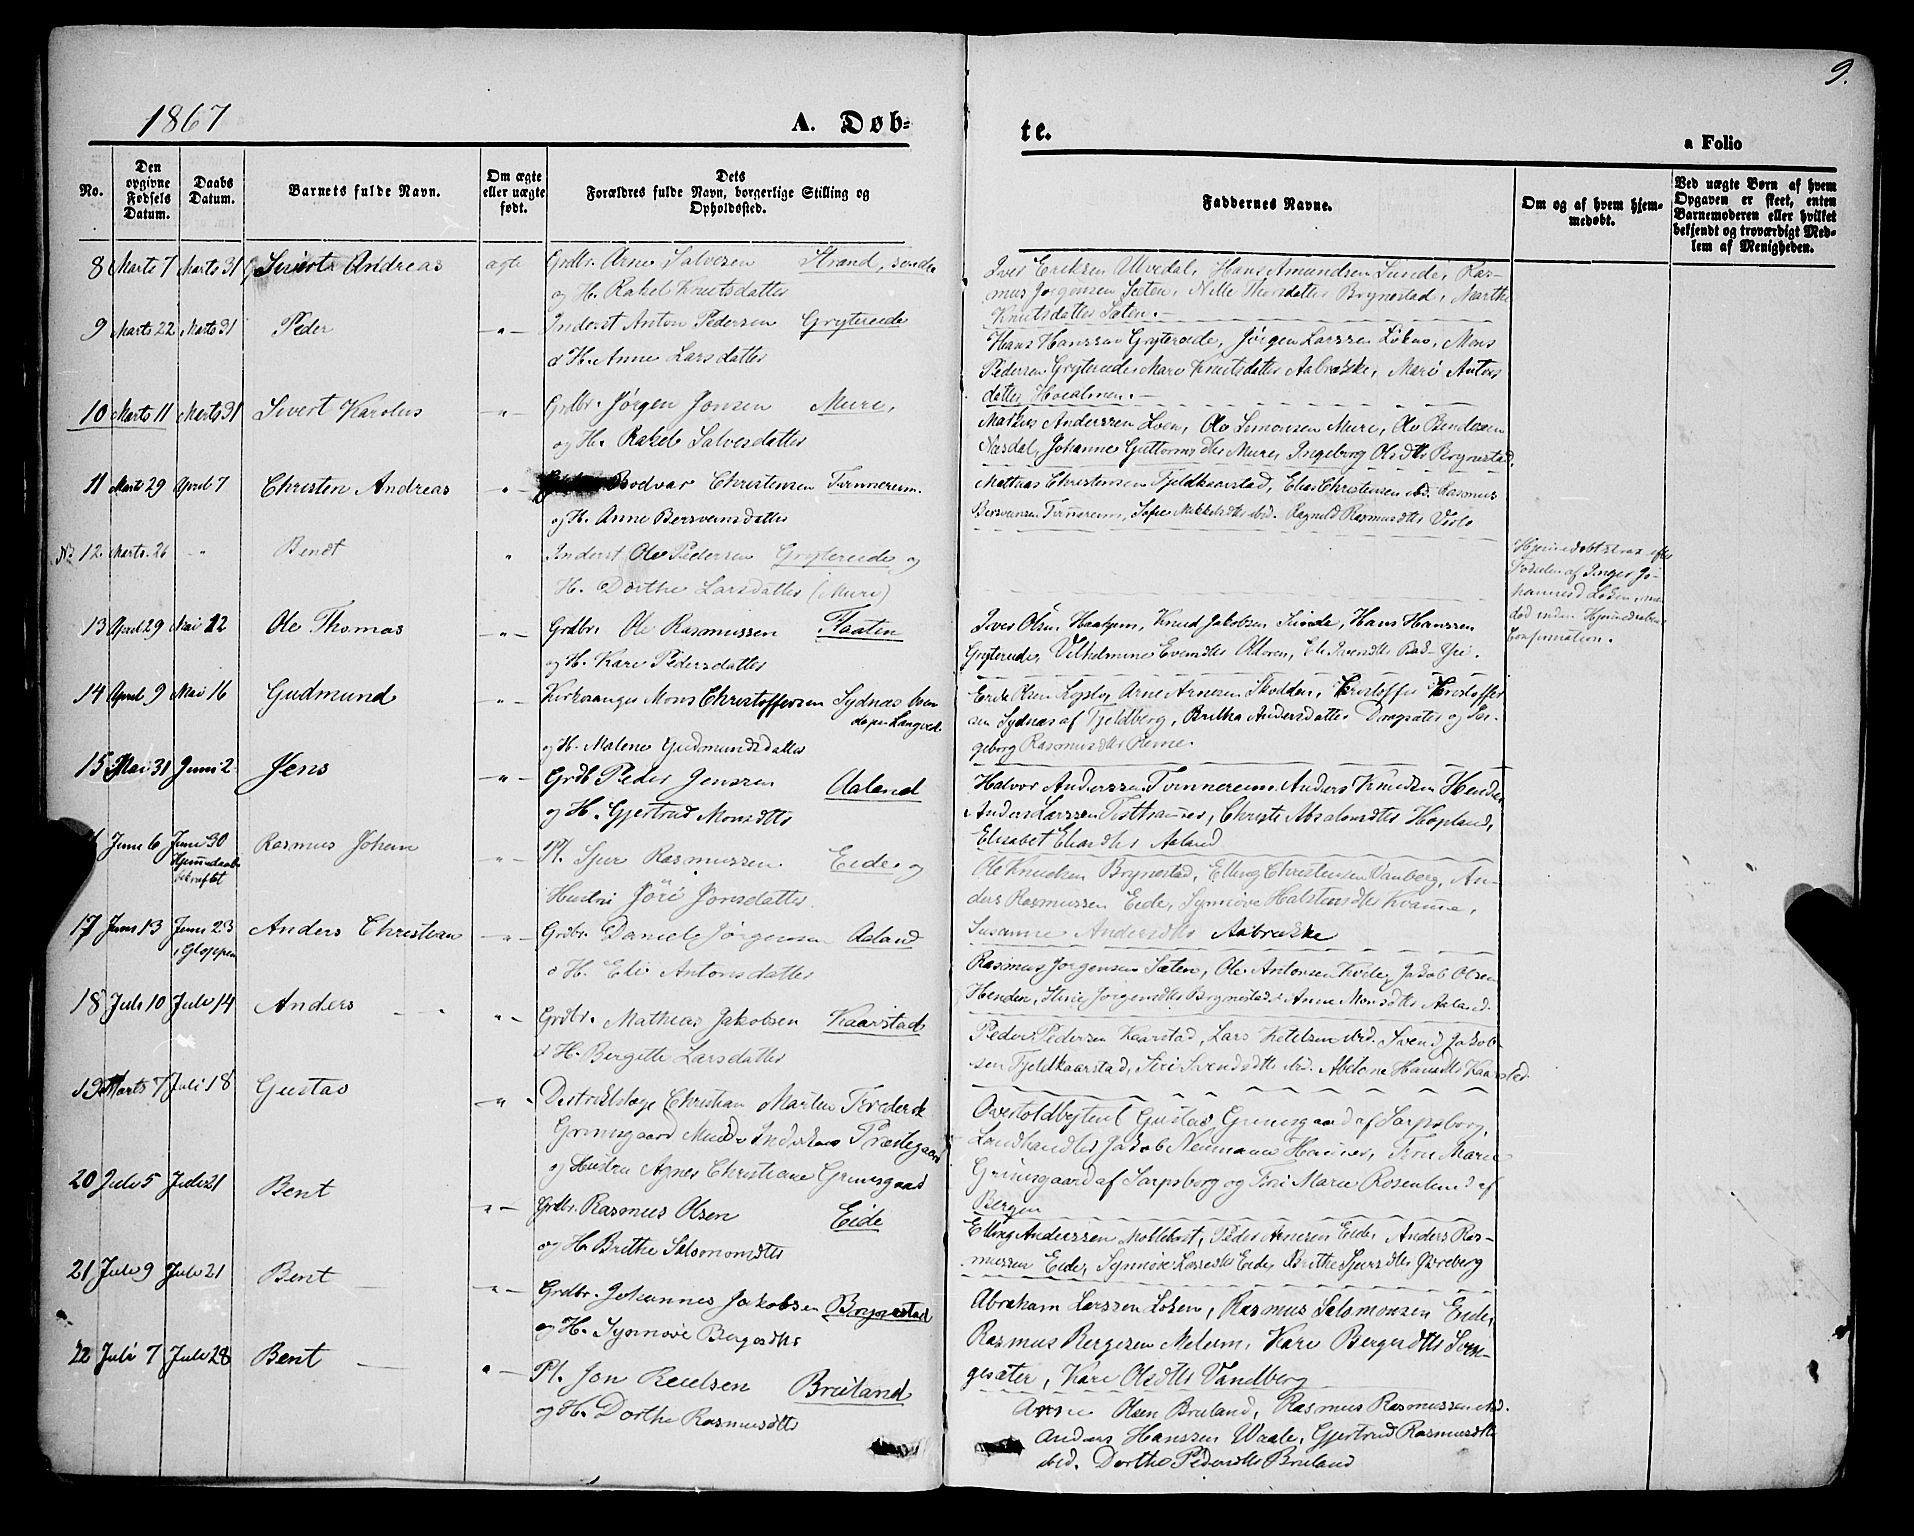 9.
1867
A. Døb-
te.
a Folio
No.
Den opgivne Fødsels Datum.
Daabs Datum.
Barnets fulde Navn.
Om ægte eller uægte født.
Dets Forældres fulde Navn, borgerlige Stilling og Opholdssted.
Faddernes Navne.
Om og af hvem hjemmedøbt.
Ved uægte Børn af hvem Opgaven er skeet, enten Barnemoderen eller hvilket bekjendt og troværdigt Medlem af Menigheden.
8 Marts 7 Marts 31 Sivert Andreas ægte Grdbr. Arne Salvesen Strand, søndre
og H. Rakel Knutsdatter
Iver Eriksen Utvedal, Hans Amundsen Sunde, Ras-
mus Jørgensen Sæten, Nille Thorsdatter Brynestad, Marthe
Knutsdatter Sæten.
9 Marts 22 Marts 31 Peder -"- Inderst Anton Pedersen Grytereide
o H. Anne Larsdatter
Hans Hanssen Gryterede, Jørgen Larssen Løken, Mons
Pedersen Gryterede, Mari Knutsdatter Aabrække, Mari Antons
datter
10 Marts 11 Marts 31 Sivert Karolus -"- Grdbr. Jørgen Jonsen Mure,
og H. Rakel Salvesdatter
Markus Anderssen Loen, Ole Simonsen Mure, Ole Bendixen
Næsdal, Johanne Guttormsdtr Mure, Ingeborg Olsdtr Brynestad,
11 Marts 29 April 7 Christen Andreas -"- Bodvar Christensen Tvinnereim.
og H. Anne Bersvensdatter
Mathias Christensen Fjeldkaarstad, Elias Christensen ibd. Rasmus
Bersvensen Tvinnereim, Sofie Mikkelsdtr ibd. Ragnild Rasmusdtr Visle
No 12. Marts 26 " Bendt " Inderst Ole Pedersen Gryterede og
H. Dorthe Larsdatter (Mure)
Hjemmedøbt strax efter
Fødselen af Inger Jo-
hannesd Løken, men
død inden Hjemmedaabens
Confirmation.
13 April 29 Mai 12 Ole Thomas -"- Grdbr. Ole Rasmussen Faaten
og H. Kari Pedersdatter
Iver Olsen Haahjem, Knud Jakobsen Sunde, Hans Hanssen
Gryterede, Vilhelmine Evensdtr Olden, Eli Svendsdtr
14 April 9 Mai 16 Gudmund -"- Kirkesanger Mons Christoffersen Sydnæs
og H. Malene Gudmundsdatter
Erik Olsen Arne Arnesen Skodden, Kristoffer Kristoffer
sen Sydnæs af Fjeldberg, Britha Andersdatter Dragsæter og In-
geborg Rasmusdtr
15 Mai 31 Juni 2 Jens -"- Grdb Peder Jenssen Aaland
og H. Gjertrud Monsdtr
Halvor Anderssen Tvinnereim, Anders Knudsen Henden,
Anders Larssen Christi Absalonsdtr Hopland,
Elisabet Eliasdtr Aaland
Juni 6 Juni 30 Rasmus Johan " Pl. Sjur Rasmussen Eide og
Hjemmedaab
bekræftet
Hustru Jøri Jonsdatter.
Ole Knudsen Brynestad, Elling Christensen Vanberg, An-
ders Rasmussen Eide, Synnøve Halstensdtr Kvamme,
Susanne Andersdtr Aabrække
17 Juni 13 Juni 23 Anders Christian -"- Grdbr. Daniel Jørgensen Aaland
i Gloppen
o H. Eli Antonsdatter
Rasmus Jørgensen Sæten, Ole Antonsen Kvile, Jakob Olsen
Henden, Stine Jørgensdtr Brynestad, Anne Monsdtr Aaland.
18 Juli 10 Juli 14 Anders " - Grdbr. Mathias Jakobsen Kaarstad
o H. Bergitte Larsdatter
Peder Pedersen Kaarstad, Lars Ketelsen ibd. Svend Jakob-
sen Fjeldkaarstad, Siri Svendsdtr ibd. Abelone Hansdtr Kaarstad
19 Marts 7 Juli 18 Gustav " - Destriktslæge Christian Martin Frederik
Grimsgaard Præstegaard
og Hustru Agnes Christiane Grimsgaard
Overtoldbetjent Gustav Grimsgaard af Sarpsborg,
Landhandler Jakob Neumann Fru Marie
Grimsgaard af Sarpsborg og Frk Marie Rosenlund af
Bergen
20 Juli 5 Juli 21 Bent " - Grdbr. Rasmus Olsen Eide
og H. Brithe Salomonsdtr
Elling Anderssen Myklebust, Peder Arnesen Eide, Anders Ras-
mussen Eide, Synnøve Lassesdtr Eide, Brithe Sjursdtr Øvreberg
21 Juli 9 Juli 21 Bent " - Grdbr. Johannes Jakobsen Brynestad
og H. Synnøve Bergesdtr
Abraham Larssen Løken, Rasmus Salomonsen Eide,
Rasmus Bergesen Melem, Kari Bergesdtr
gesæter, Kari Olsdtr Vandberg
22 Juli 7 Juli 28 Bent " - Pl. Jon Reielsen Breiland
og H. Dorthe Rasmusdtr
Arne Olsen Breiland, Rasmus Rasmussen ibd.
Anders Hanssen Waale, Gjertrud Rasmusdtr
ibd. Dorthe Pedersdtr Breiland